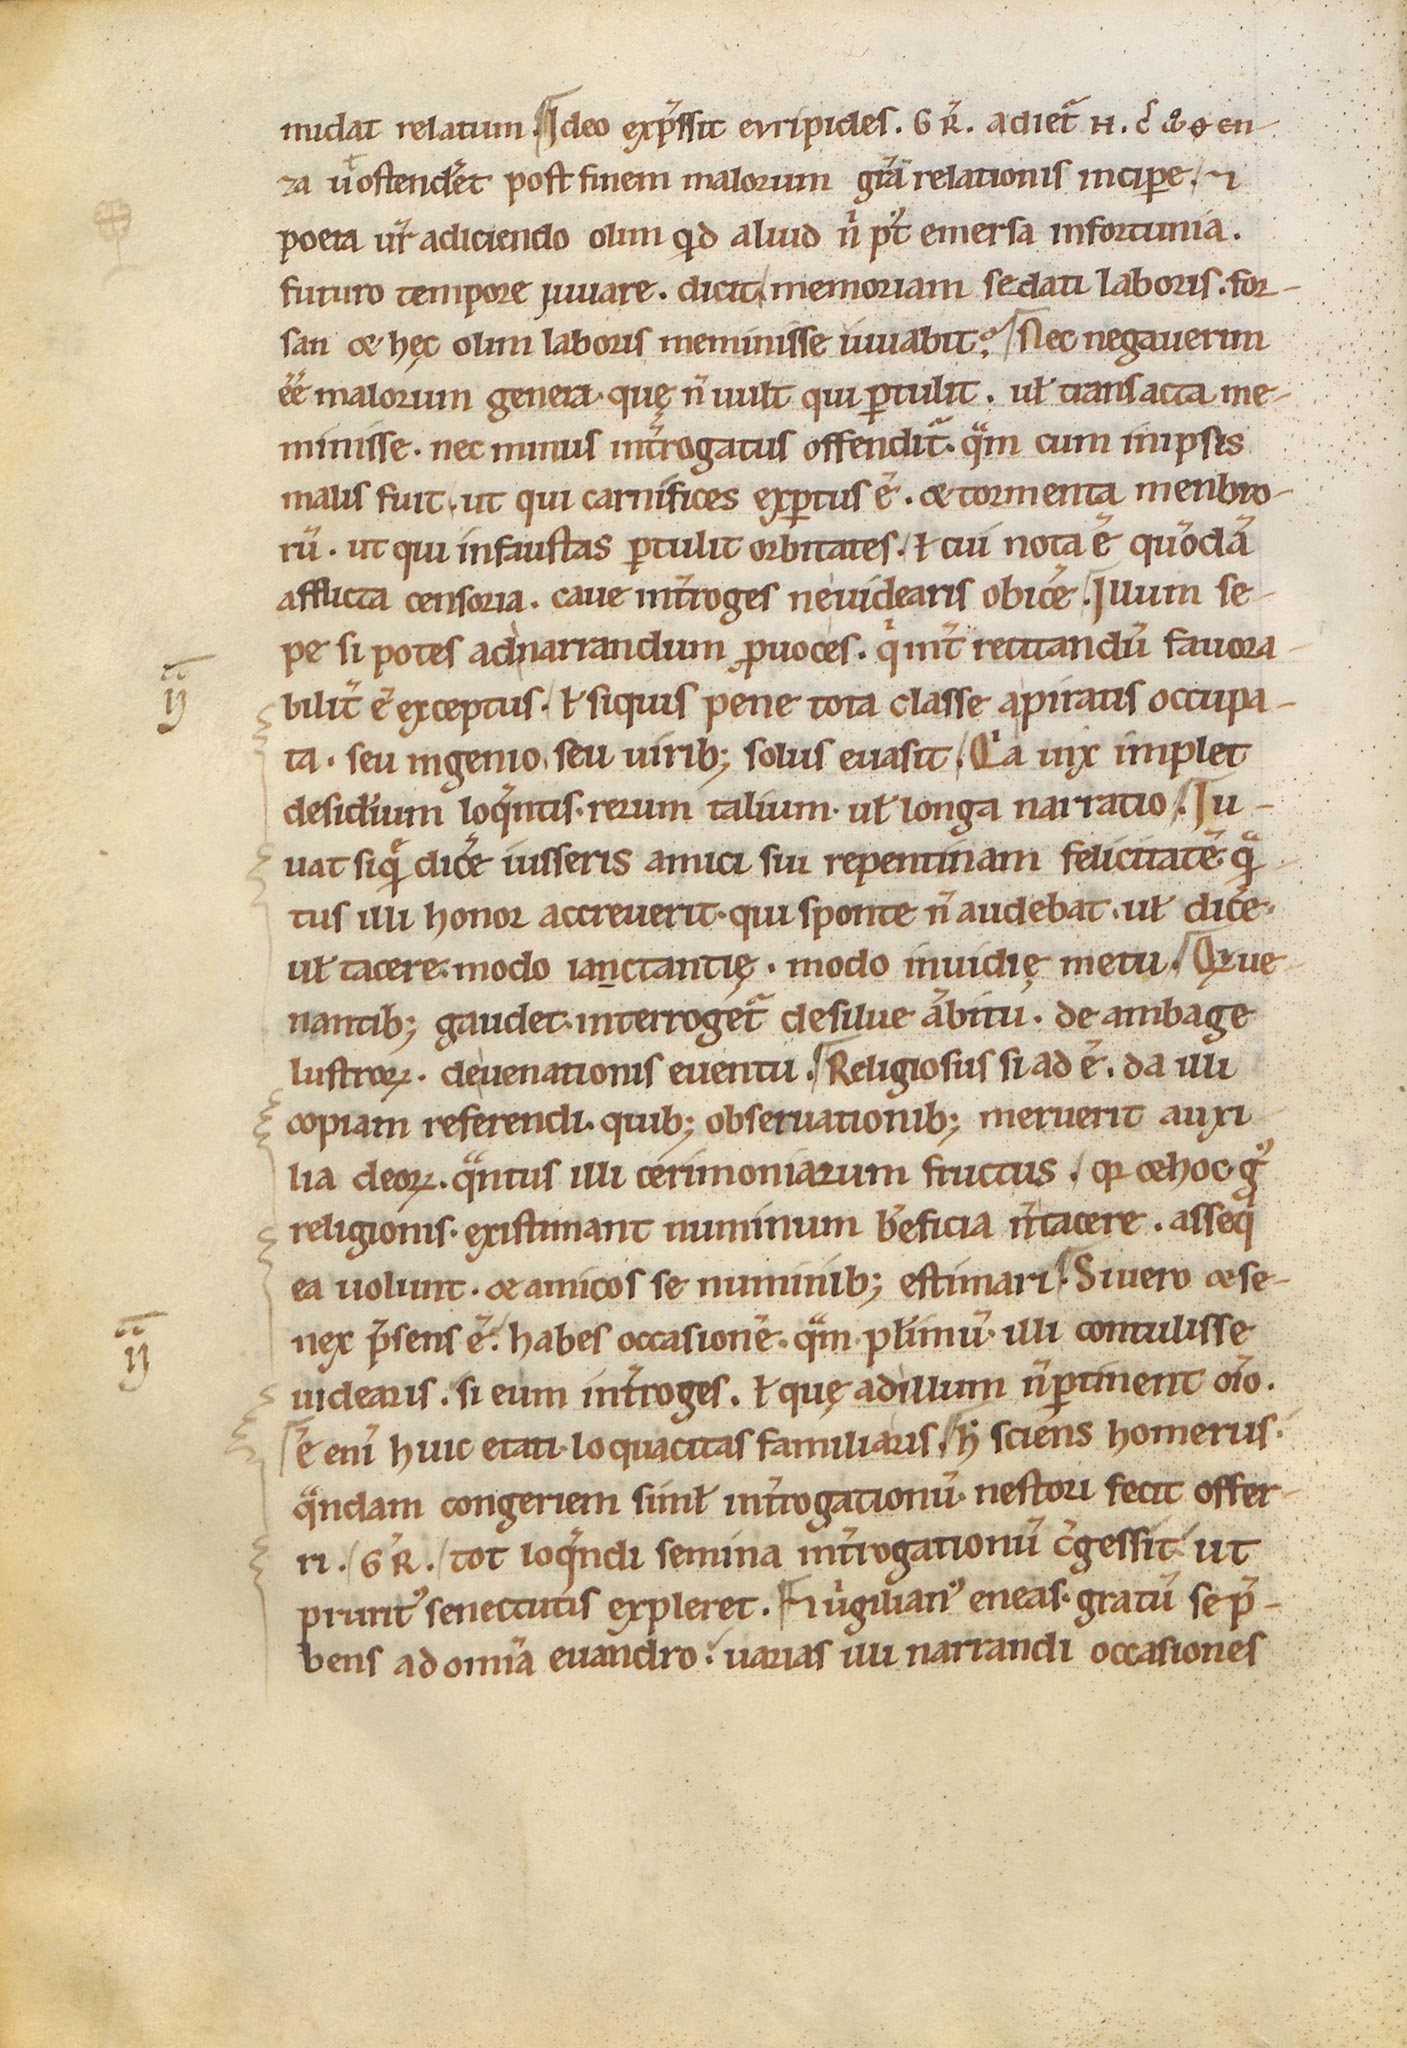 nudat relatum. Ideo exp̄ssit evripides. G R̄. adiet᷑ н. c̄
za ul̄ ostender̄t post finem malorum gr̄a relationis incipe. ⁊
poeta ur̄ adiciendo olim qd aliud n̄ p᷒t emersa infortunia.
futuro tempore iuuare. dicit memoriam sedati laboris. for-
san & hęc olim laboris meminisse iuuabit. Nec negauerim
eē malorum genera. quę n̄ uult qui ꝑtulit. ul̄ transacta me-
minisse. nec minus int̄rogatus offendit᷑. qͣm cum in ipsis
malis fuit. ut qui carnifices exꝑtus ē. & tormenta menbro-
rū. ut qui infaustas ꝑtulit orbitates. ł cui nota ē quōdā
afflicta censoria. caue int̄roges ne uidearis obicē. Illum se-
pe si potes ad narrandum ꝓuoces. qͥ int̄ recitandū fauora-
bilit̄ ē exceptus. ł siquis pene tota classe a piratis occupa-
ta. seu ingenio seu uirib; solus euasit. Ca uix implet
desid̄ium loqn̄tis. rerum talium. ul̄ longa narratio. Iu-
uat siqͣ dicē iusseris amici sui repentinam felicitatē. qͣ-
tus illi honor accreuerit. qui sponte n̄ audebat. ul̄ dicē.
ul̄ tacere. modo ianctantię. modo inuidię metu. Qͥ ue-
nantib; gaudet. interroget᷑ de silue ābitu. de ambage
lustroꝝ. de uenationis euentu. Religiosus si ad ē. da illi
copiam referendi. quib; obseruationib; meruerit auxi
lia deoꝝ. qͣntus illi cerimoniarum fructus. qꝛ & hoc. g᷒
religionis. existimant numinum b̄eficia n̄ tacere. asse qͥ
ea uolunt. & amicos se numinib; estimari. Si uero & se-
nex p̄sens ē. habes occasionē. qͣm plimū. illi contulisse
uidearis. si eum int̄roges. ł quę ad illum n̄ ꝑtinent oīo.
Ē enī huic etati. loquacitas familiaris. H̄ sciens homerus.
qͣndam congeriem simł int̄rogationū. nestori fecit offer-
ri. G R̄. tot loqn̄di semina int̄rogationū c̄gessit ut
prurit᷒ senectutis expleret. ⁊ uͥgilian᷒ eneas. gratū se p̄-
bens ad om̄ia euandro. uarias illi narrandi occasiones
ñ
ñ